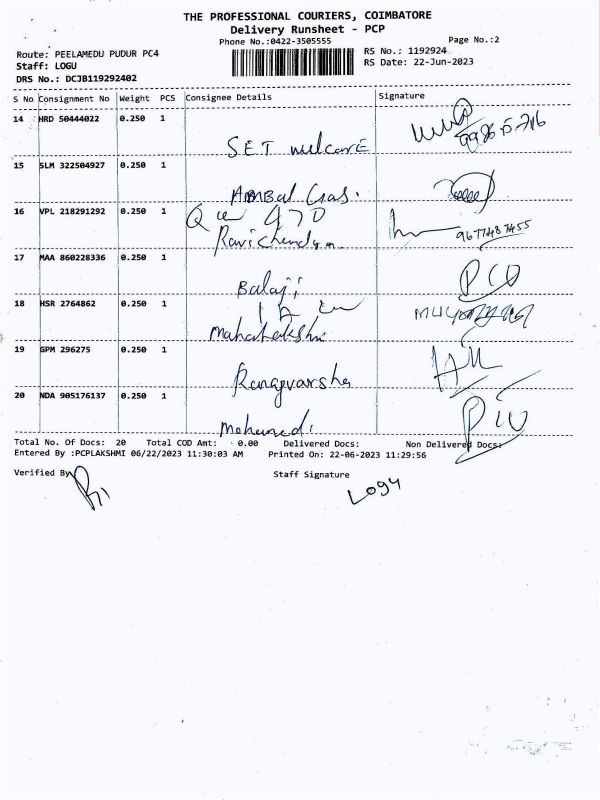 THE PROFESSIONAL COURIERS, COIMBATORE
Delivery Runsheet - PCP
Phone No.:0422-3505555
Page No.:2
Route: PEELAMEDU PUDUR PC4
RS No.: 1192924
Staff: LOGU
RS Date: 22-Jun-2023
DRS No.: DCJB119292402
S No Consignment No Weight PCS Consignee Details Signature
14 HRD 50444022 0.250 1
SET
15 SLM 322504927 0.250 1
Ambal Gas.
16 VPL 218291292 0.250 1
Ravichandran
9677487455
17 MAA 860228336 0.250 1
Balaji
18 HSR 2764862 0.250 1
Mahalakshmi
19 GPM 296275 0.250 1
20 NDA 905176137 0.250 1
Total No. Of Docs: 20 Total COD Amt: 0.00 Delivered Docs: Non Delivered Docs:
Entered By :PCPLAKSHMI 06/22/2023 11:30:03 AM Printed On: 22-06-2023 11:29:56
Verified By Staff Signature
Logu